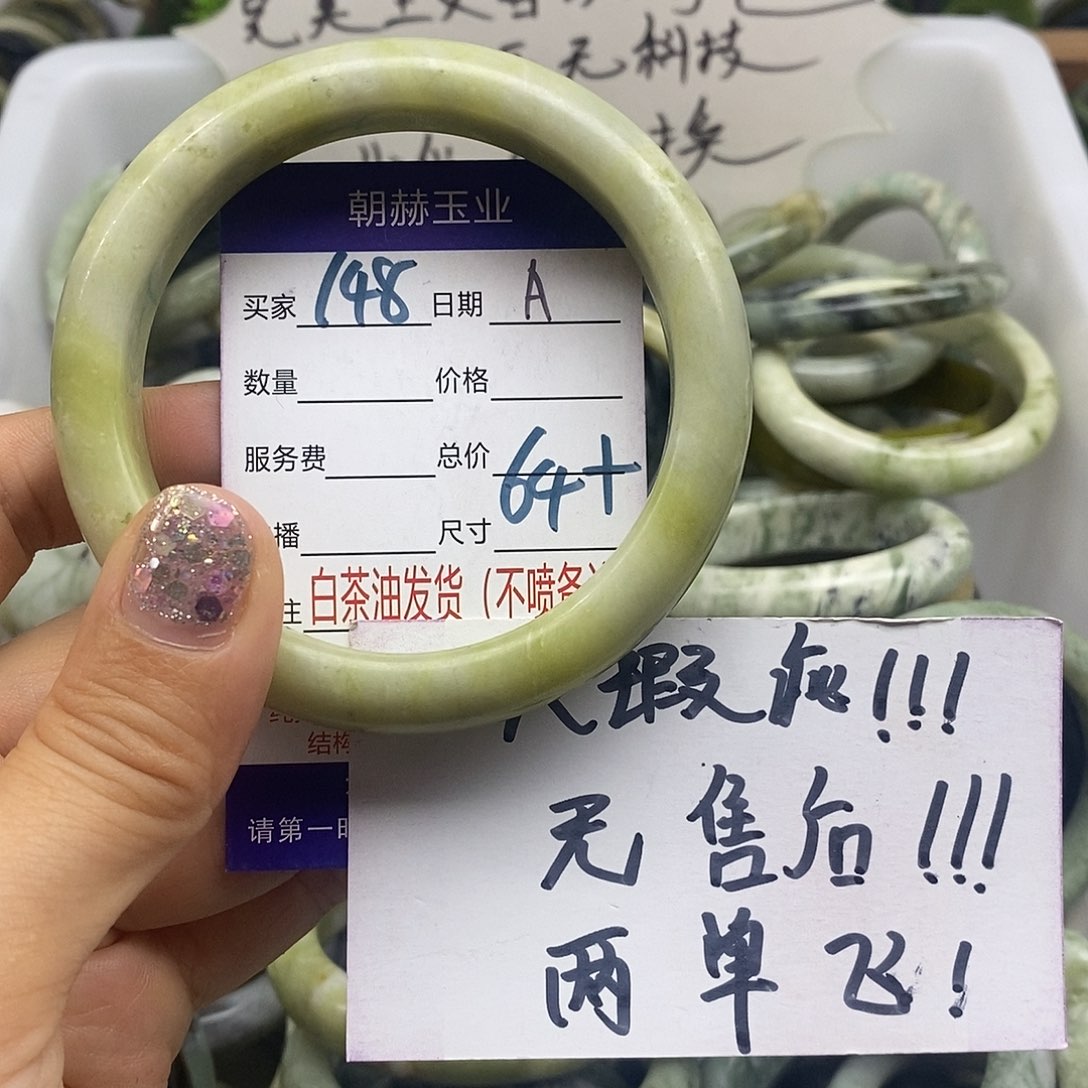 无科技
朝赫玉业
买家 148 日期 A
数量 价格
服务费 总价
64+
播 尺寸
注 白茶油发货（不喷
结构
请第一时
瑕疵!!!
无售后!!!
两单飞!